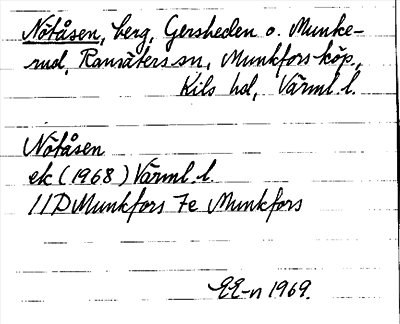 Nötåsen, berg, Gersheden o. Munke-
rud, Ransäters sn, Munkfors köp.,
Kils hd, Värml. l.
Nötåsen
ek (1968) Värml. l.
11D Munkfors 7e Munkfors
EE-n 1969.